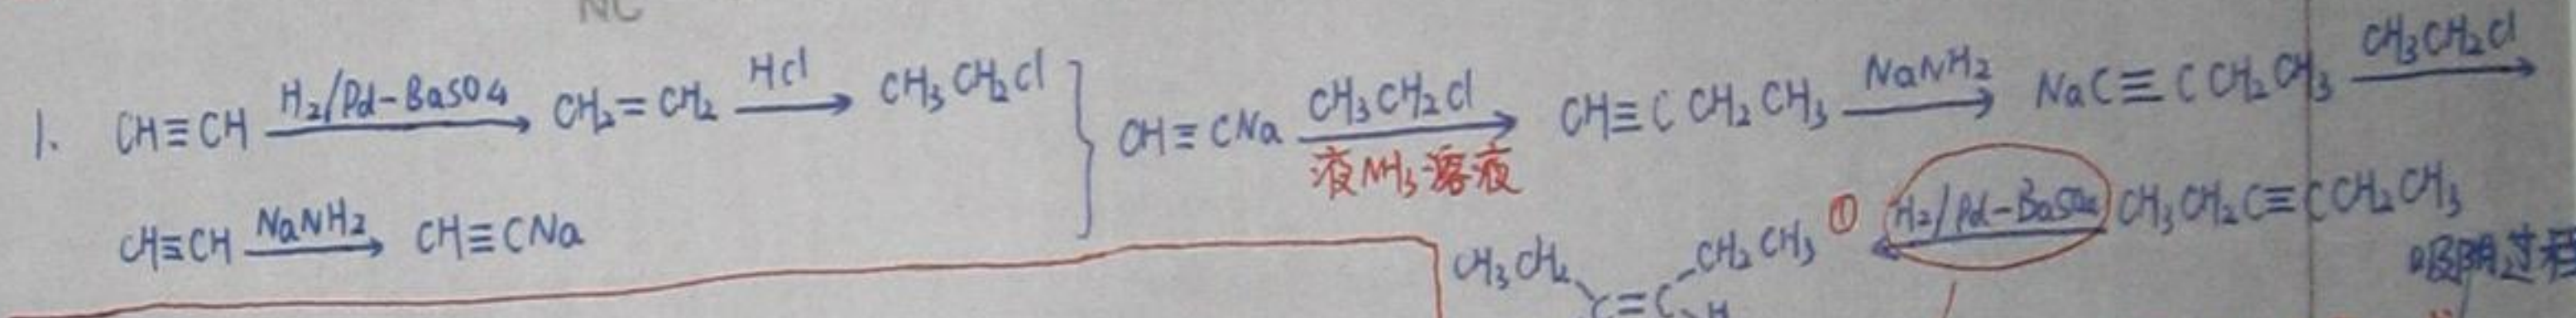 NC
1. CH≡CH H₂/Pd-BaSO4 CH₂=CH₂ HCl CH₃CH₂Cl
CH≡CH NaNH₂ CH≡CNa
CH≡CNa CH₃CH₂Cl 液NH₃溶液 CH≡CCH₂CH₃ NaNH₂ NaC≡CCH₂CH₃ CH₃CH₂Cl
CH₃CH₂C≡CCH₂CH₃ H₂/Pd-BaSO4 ①
CH₃CH₂ CH₂CH₃
C=C H
过程